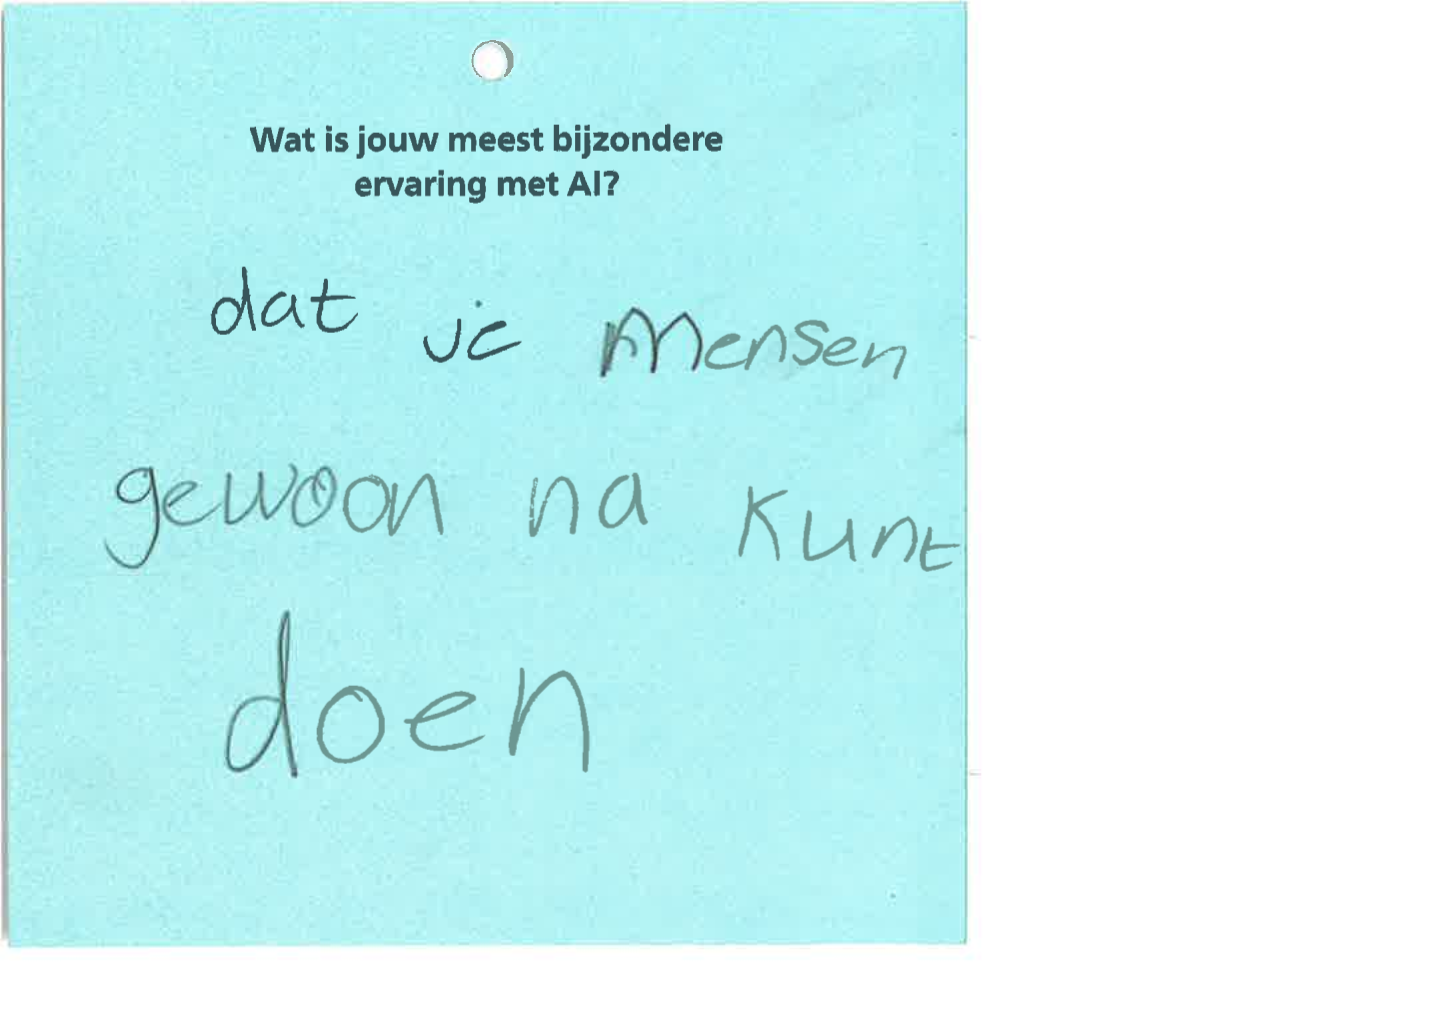 Wat is jouw meest bijzondere
ervaring met AI?
dat je mensen
gewoon na kunt
doen